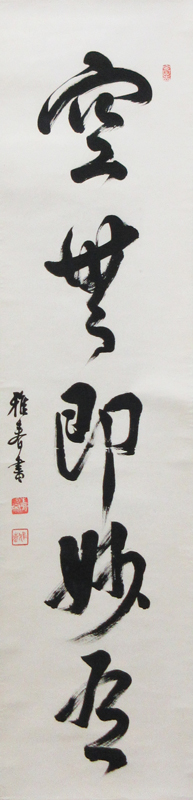 空無即妙有
雅春書